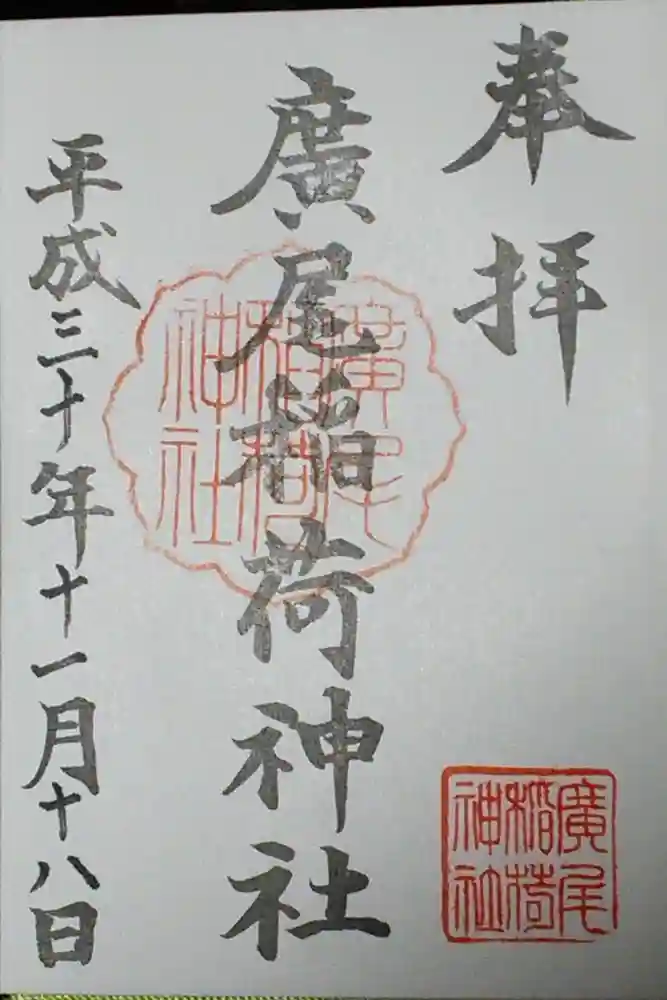 奉拝
廣尾稲荷神社
平成三十年十一月十八日
廣尾
稲荷
神社
廣尾
稲荷
神社